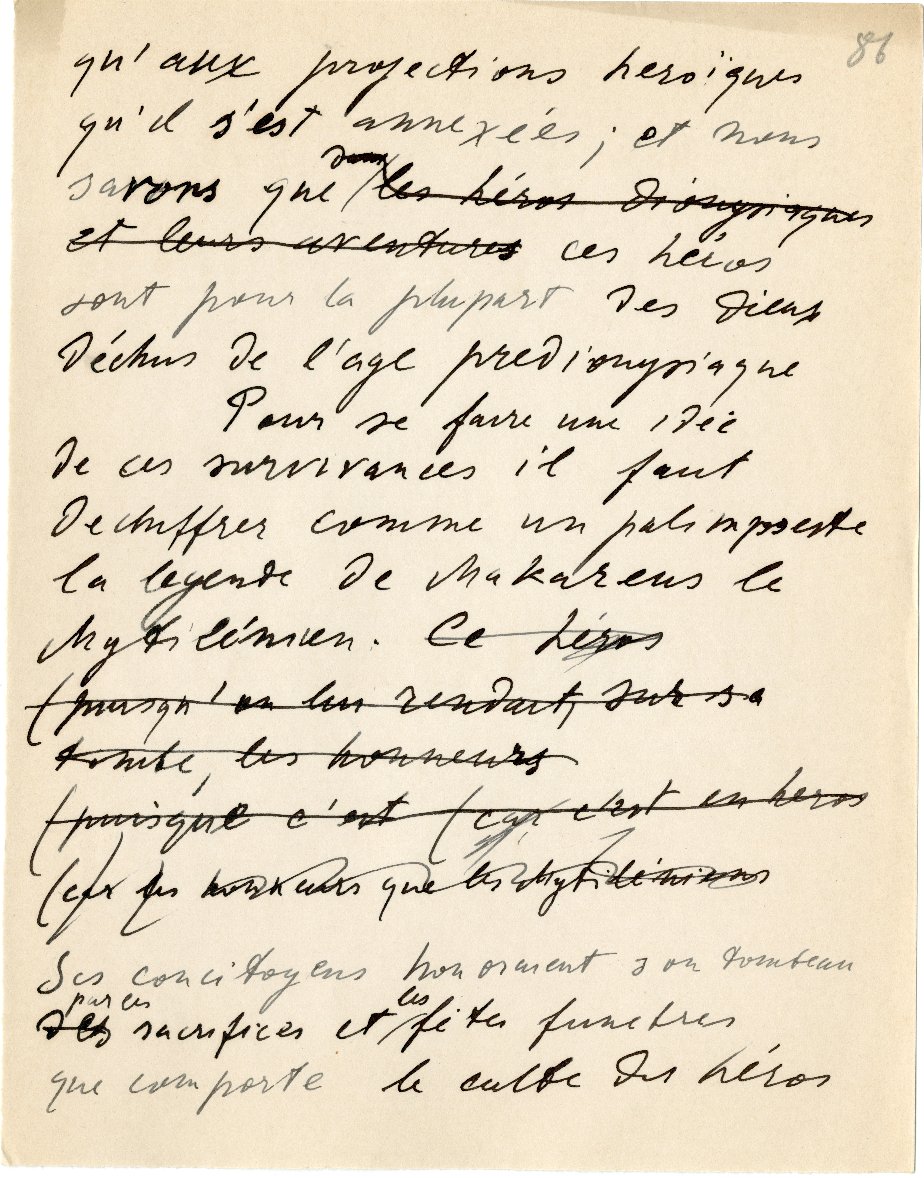 86
qu'aux projections heroïques
qu'il s'est annexées ; et nous
savons que dans les héros dionysiaques
et leurs aventures ces héros
sont pour la plupart des dieux
déchus de l'age predionysiaque
Pour se faire une idée
de ces survivances il faut
dechiffrer comme un palimpseste
la legende de Makareus le
Mytilénien. Ce héros
(puisqu'on lui rendait, sur sa
tombe, les honneurs
(puisque c'est (car c'est en heros
(car les honneurs que les Mytiléniens
Ses concitoyens honoraient son tombeau
par les les
des sacrifices et fêtes funebres
que comporte le culte des héros